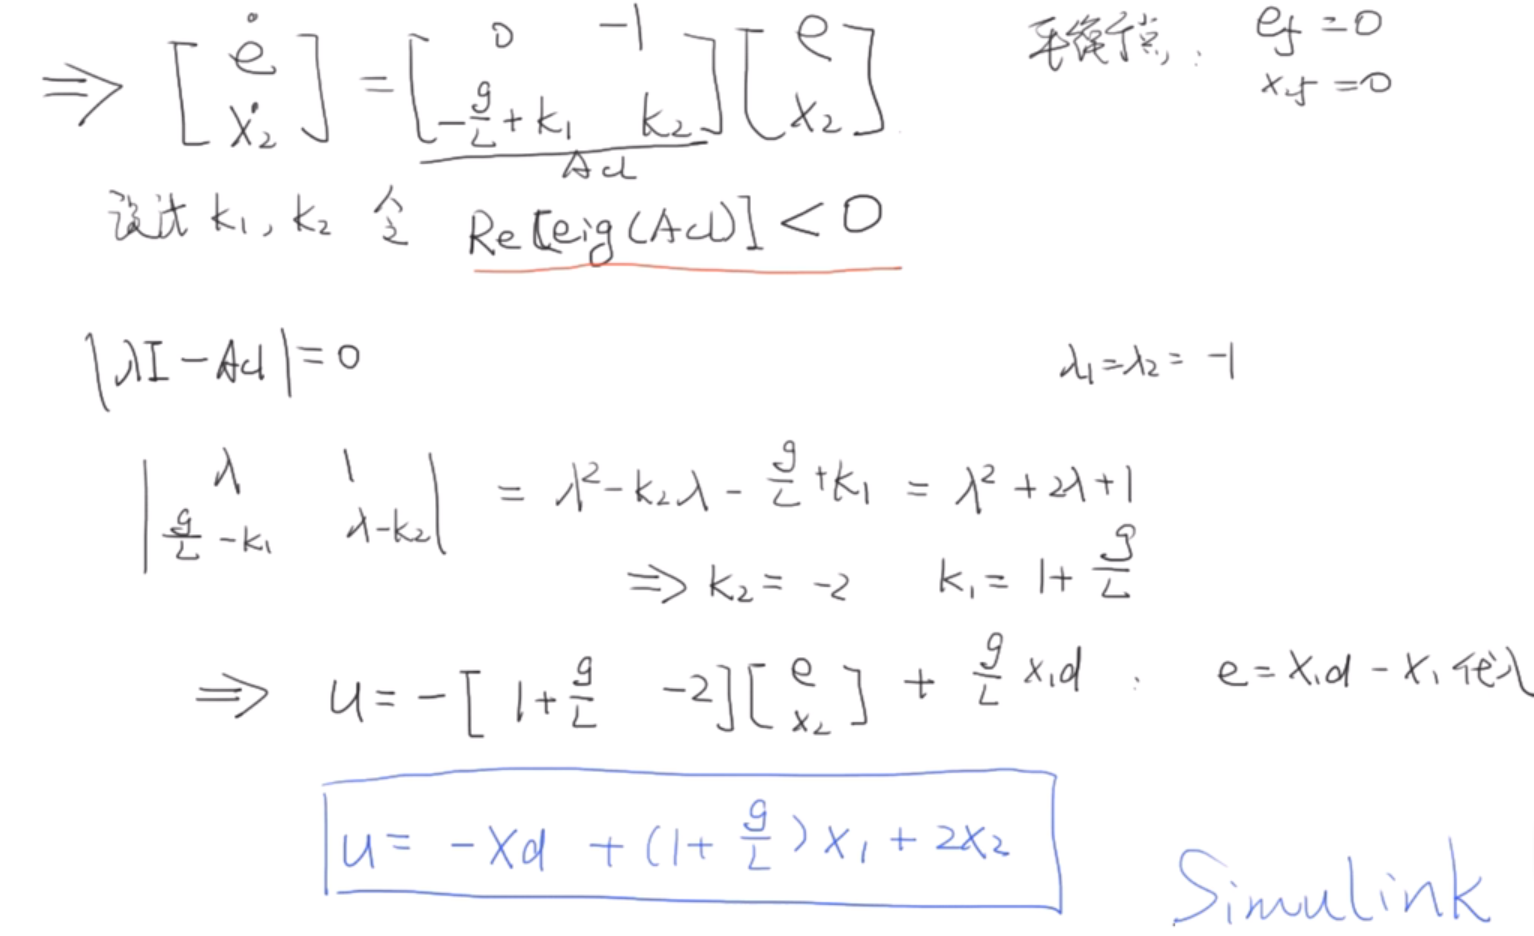 ⇒ [ė ẋ₂] = [0 -1; -g/L+k₁ k₂] [e x₂] 平衡点: e_f = 0
Acl x₂f = 0
设计 k₁, k₂ 令 Re[eig(Acl)] < 0
|λI - Acl| = 0 λ₁ = λ₂ = -1
|λ 1; g/L - k₁ λ - k₂| = λ² - k₂λ - g/L + k₁ = λ² + 2λ + 1
⇒ k₂ = -2 k₁ = 1 + g/L
⇒ u = -[1 + g/L -2] [e x₂] + g/L x₁d : e = x₁d - x₁ 代入
u = -xd + (1 + g/L) x₁ + 2x₂
Simulink